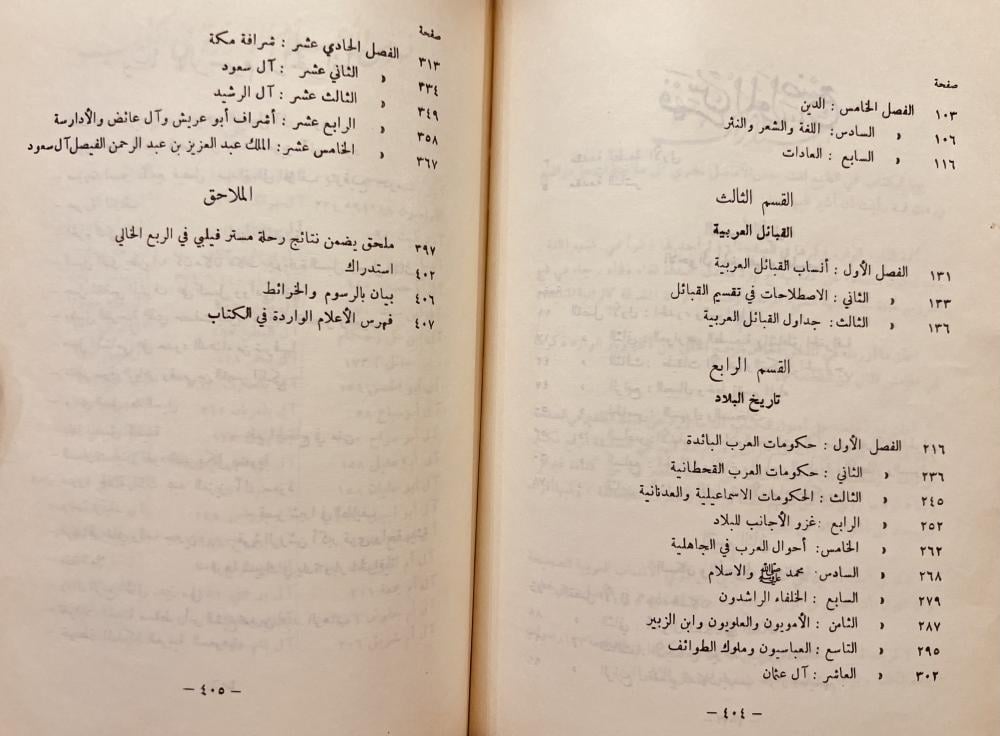 صفحة
١٠٣ الفصل الخامس : الدين
١٠٦ » السادس : اللغة والشعر والنثر
١١٦ » السابع : العادات
القسم الثالث
القبائل العربية
١٣١ الفصل الأول : أنساب القبائل العربية
١٣٣ » الثاني : الاصطلاحات في تقسيم القبائل
١٣٦ » الثالث : جداول القبائل العربية
القسم الرابع
تاريخ البلاد
٢١٦ الفصل الأول : حكومات العرب البائدة
٢٣٦ » الثاني : حكومات العرب القحطانية
٢٤٥ » الثالث : الحكومات الاسماعيلية والعدنانية
٢٥٢ » الرابع : غزو الأجانب للبلاد
٢٦٢ » الخامس : أحوال العرب في الجاهلية
٢٦٨ » السادس : محمد ﷺ والاسلام
٢٧٩ » السابع : الخلفاء الراشدون
٢٨٧ » الثامن : الأمويون والعلويون وابن الزبير
٢٩٥ » التاسع : العباسيون وملوك الطوائف
٣٠٢ » العاشر : آل عثمان
— ٤٠٤ —
صفحة
٣١٣ الفصل الحادي عشر : شرافة مكة
٣٣٤ » الثاني عشر : آل سعود
٣٤٩ » الثالث عشر : آل الرشيد
٣٥٨ » الرابع عشر : أشراف أبو عريش وآل عائض والأدارسة
٣٦٧ » الخامس عشر : الملك عبد العزيز بن عبد الرحمن الفيصل آل سعود
الملاحق
٣٩٧ ملحق يضمن نتائج رحلة مستر فيلبي في الربع الخالي
٤٠٢ استدراك
٤٠٦ بيان بالرسوم والخرائط
٤٠٧ فهرس الأعلام الواردة في الكتاب
— ٤٠٥ —